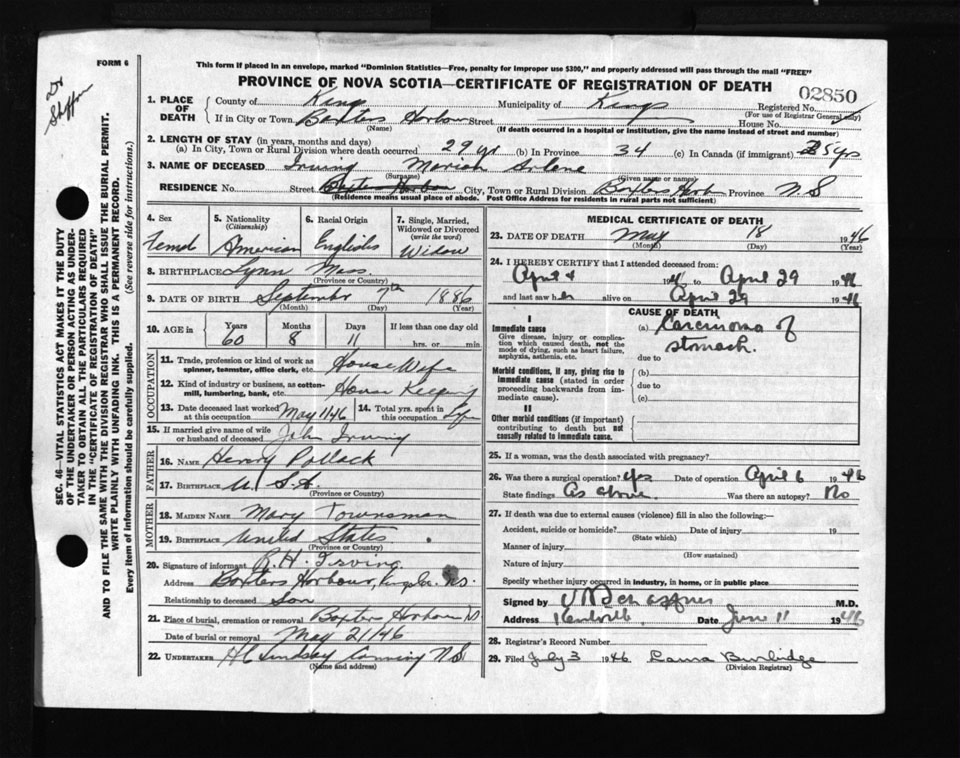 FORM 6
This form if placed in an envelope, marked "Dominion Statistics—Free, penalty for improper use $300," and properly addressed will pass through the mail "FREE"
PROVINCE OF NOVA SCOTIA—CERTIFICATE OF REGISTRATION OF DEATH
02850
Dr
SEC. 46—VITAL STATISTICS ACT MAKES IT THE DUTY
OF THE UNDERTAKER OR PERSON ACTING AS UNDER-
TAKER TO OBTAIN ALL THE PARTICULARS REQUIRED
IN THE "CERTIFICATE OF REGISTRATION OF DEATH"
AND TO FILE THE SAME WITH THE DIVISION REGISTRAR WHO SHALL ISSUE THE BURIAL PERMIT.
WRITE PLAINLY WITH UNFADING INK. THIS IS A PERMANENT RECORD.
Every item of information should be carefully supplied. (See reverse side for instructions.)
1. PLACE OF DEATH
County of Kings Municipality of Kings Registered No.
(For use of Registrar General only)
If in City or Town Baxters Harbour Street House No.
(Name) (If death occurred in a hospital or institution, give the name instead of street and number)
2. LENGTH OF STAY (in years, months and days)
(a) In City, Town or Rural Division where death occurred 29 yr (b) In Province 34 (c) In Canada (if immigrant) 35 yrs
3. NAME OF DECEASED Irving Mariah Arlene
(Surname) (Given name or names)
RESIDENCE No. Street Baxters Harbour City, Town or Rural Division Baxters Harb Province N.S
(Residence means usual place of abode. Post Office Address for residents in rural parts not sufficient)
4. Sex
Femal
5. Nationality
(Citizenship)
American
6. Racial Origin
English
7. Single, Married,
Widowed or Divorced
(write the word)
Widow
8. BIRTHPLACE Lynn Mass.
(Province or Country)
9. DATE OF BIRTH September 7th 1886
(Month) (Day) (Year)
10. AGE in Years Months Days If less than one day old
60 8 11 hrs. or min
OCCUPATION
11. Trade, profession or kind of work as House Wife
spinner, teamster, office clerk, etc.
12. Kind of industry or business, as cotton- House Keeping
mill, lumbering, bank, etc.
13. Date deceased last worked May 1/46
at this occupation
14. Total yrs. spent in
this occupation
15. If married give name of wife
or husband of deceased John Irving
FATHER
16. NAME Henry Pollack
17. BIRTHPLACE U.S.A.
(Province or Country)
MOTHER
18. MAIDEN NAME Mary Townsman
19. BIRTHPLACE United States
(Province or Country)
20. Signature of informant R.H. Irving
Address Baxters Harbour, Kings Co. N.S.
Relationship to deceased Son
21. Place of burial, cremation or removal Baxters Harbour NS
Date of burial or removal May 21/46
22. UNDERTAKER H C Lindsay Canning N.S
(Name and address)
MEDICAL CERTIFICATE OF DEATH
23. DATE OF DEATH May 18 1946
(Month) (Day) (Year)
24. I HEREBY CERTIFY that I attended deceased from:
April 4 1946 to April 29 1946
and last saw her alive on April 29 1946
CAUSE OF DEATH
I
Immediate cause (a) Carcinoma of
Give disease, injury or complica-
tion which caused death, not the stomach.
mode of dying, such as heart failure,
asphyxia, asthenia, etc. due to
Morbid conditions, if any, giving rise to (b)
immediate cause (stated in order
proceeding backwards from im- due to
mediate cause). (c)
II
Other morbid conditions (if important)
contributing to death but not
causally related to immediate cause.
25. If a woman, was the death associated with pregnancy?
26. Was there a surgical operation? yes Date of operation April 6 1946
State findings As above. Was there an autopsy? No
27. If death was due to external causes (violence) fill in also the following:—
Accident, suicide or homicide? Date of injury 19
(State which)
Manner of injury
(How sustained)
Nature of injury
Specify whether injury occurred in industry, in home, or in public place
Signed by M.D.
Address Kentville Date June 11 1946
28. Registrar's Record Number
29. Filed July 3 1946 Laura Burbidge
(Division Registrar)